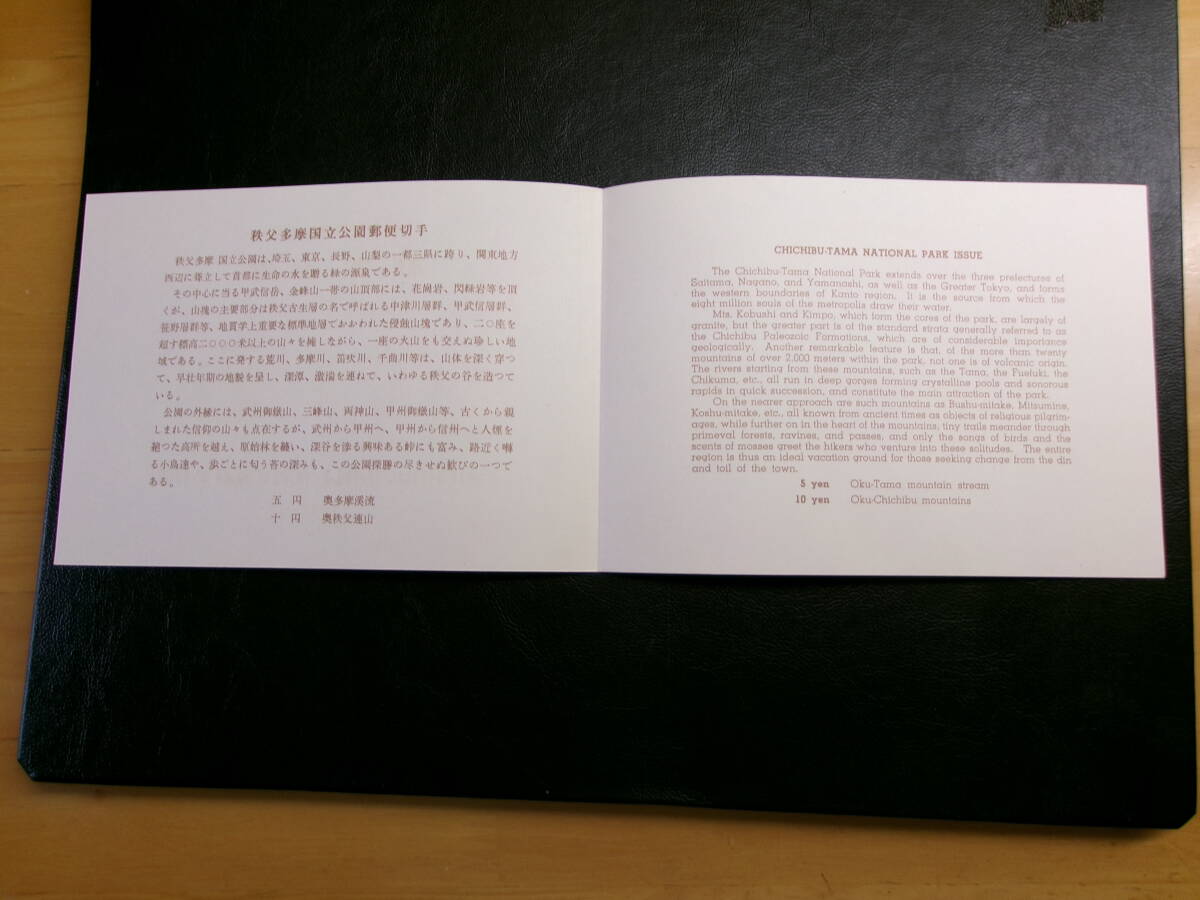 秩父多摩国立公園郵便切手
秩父多摩 国立公園は、埼玉、東京、長野、山梨の一都三県に跨り、関東地方
西辺に聳立して首都に生命の水を贈る緑の源泉である。
その中心に当る甲武信岳、金峰山一帯の山頂部には、花崗岩、閃緑岩等を頂
くが、山塊の主要部分は秩父古生層の名で呼ばれる中津川層群、甲武信層群、
笹野層群等、地質学上重要な標準地層でおかわれた侵蝕山塊であり、二〇座を
超す標高二〇〇〇米以上の山々を擁しながら、一座の火山をも交えぬ珍しい地
域である。ここに発する荒川、多摩川、笛吹川、千曲川等は、山体を深く穿つ
て、早壮年期の地貌を呈し、深潭、激湍を連ねて、いわゆる秩父の谷を造つて
いる。
公園の外縁には、武州御嶽山、三峰山、両神山、甲州御嶽山等、古くから親
しまれた信仰の山々も点在するが、武州から甲州へ、甲州から信州へと人煙を
絶つた高所を越え、原始林を縫い、深谷を渉る興味ある峠にも富み、路近く囀
る小鳥達や、歩ごとに匂う苔の深みも、この公園探勝の尽きせぬ歓びの一つで
ある。
五 円 奥多摩渓流
十 円 奥秩父連山
CHICHIBU-TAMA NATIONAL PARK ISSUE
The Chichibu-Tama National Park extends over the three prefectures of
Saitama, Nagano, and Yamanashi, as well as the Greater Tokyo, and forms
the western boundaries of Kanto region. It is the source from which the
eight million souls of the metropolis draw their water.
Mts. Kobushi and Kimpo, which form the cores of the park, are largely of
granite, but the greater part is of the standard strata generally referred to as
the Chichibu Paleozoic Formations, which are of considerable importance
geologically. Another remarkable feature is that, of the more than twenty
mountains of over 2,000 meters within the park, not one is of volcanic origin.
The rivers starting from these mountains, such as the Tama, the Fuefuki, the
Chikuma, etc., all run in deep gorges forming crystalline pools and sonorous
rapids in quick succession, and constitute the main attraction of the park.
On the nearer approach are such mountains as Bushu-mitake, Mitsumine,
Koshu-mitake, etc., all known from ancient times as objects of religious pilgrim-
ages, while further on in the heart of the mountains, tiny trails meander through
primeval forests, ravines, and passes, and only the songs of birds and the
scents of mosses greet the hikers who venture into these solitudes. The entire
region is thus an ideal vacation ground for those seeking change from the din
and toil of the town.
5 yen Oku-Tama mountain stream
10 yen Oku-Chichibu mountains